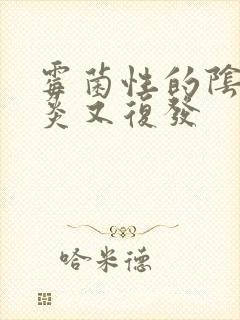 霉菌性的陰
炎又復發
哈米德